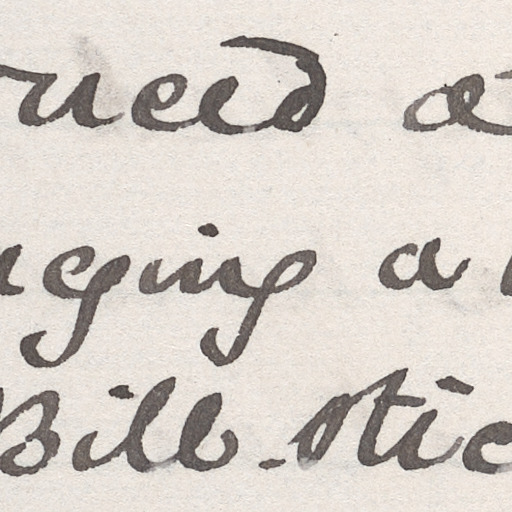 uced a
nging a
Bill-stic